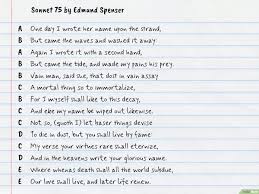 Sonnet 75 by Edmund Spenser
A One day I wrote her name upon the strand,
B But came the waves and washed it away:
A Again I wrote it with a second hand,
B But came the tide, and made my pains his prey.
B Vain man, said she, that dost in vain assay
C A mortal thing so to immortalize,
B For I myself shall like to this decay,
C And eke my name be wiped out likewise.
C Not so, (quoth I) let baser things devise
D To die in dust, but you shall live by fame:
C My verse your virtues rare shall eternize,
D And in the heavens write your glorious name.
E Where whenas death shall all the world subdue,
E Our love shall live, and later life renew.